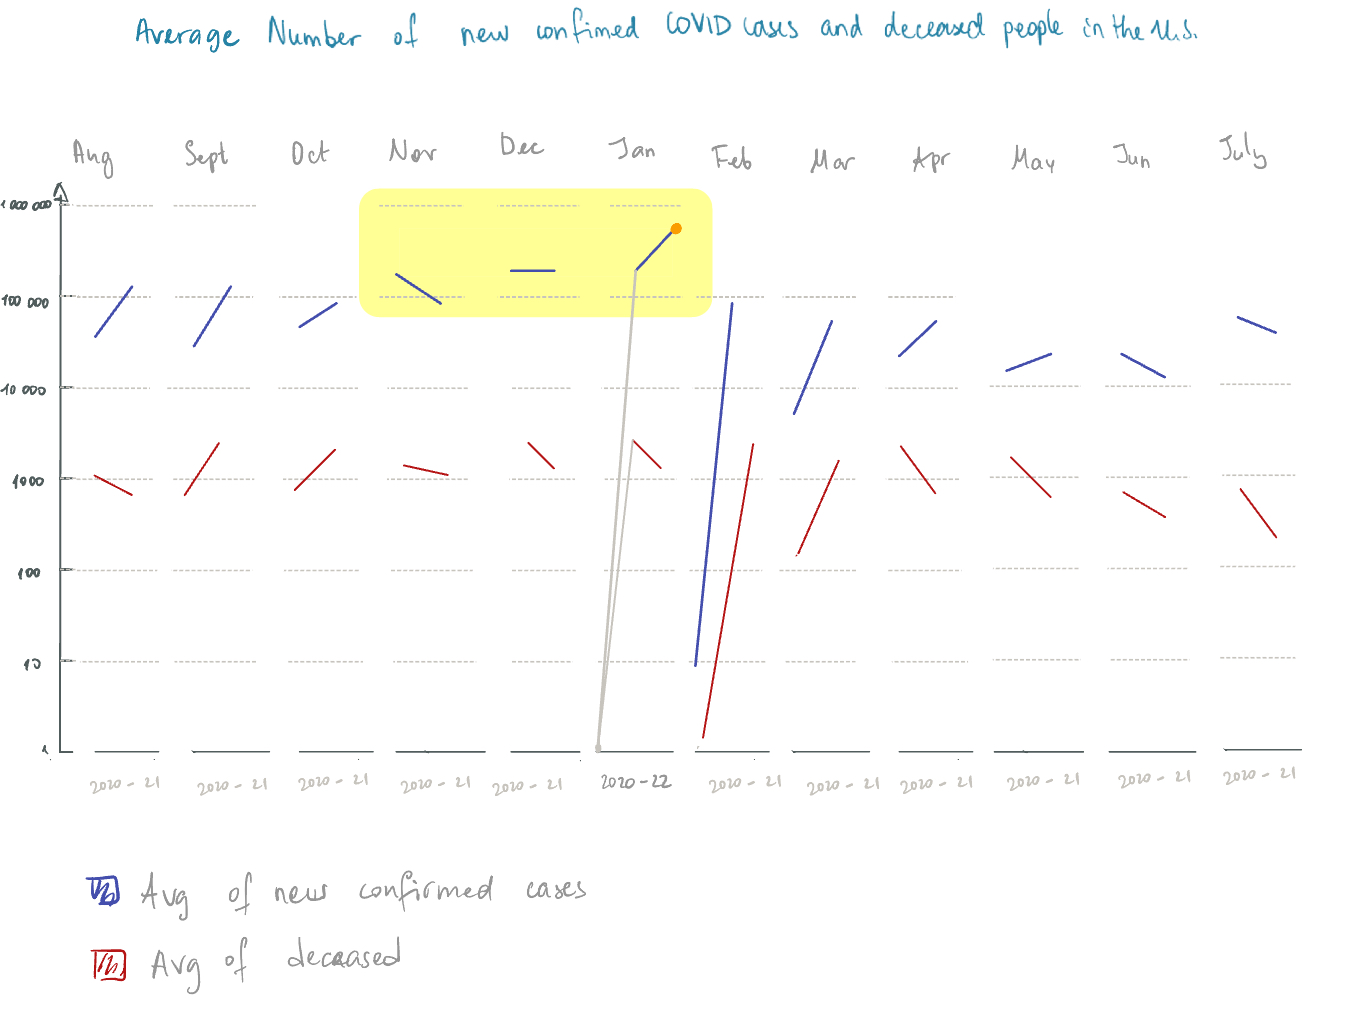 Average Number of new confimed COVID cases and deceased people in the U.S.
Aug Sept Oct Nov Dec Jan Feb Mar Apr May Jun July
1 000 000
100 000
10 000
1000
100
10
1
2020 - 21 2020 - 21 2020 - 21 2020 - 21 2020 - 21 2020 - 22 2020 - 21 2020 - 21 2020 - 21 2020 - 21 2020 - 21 2020 - 21
Avg of new confirmed cases
Avg of deceased